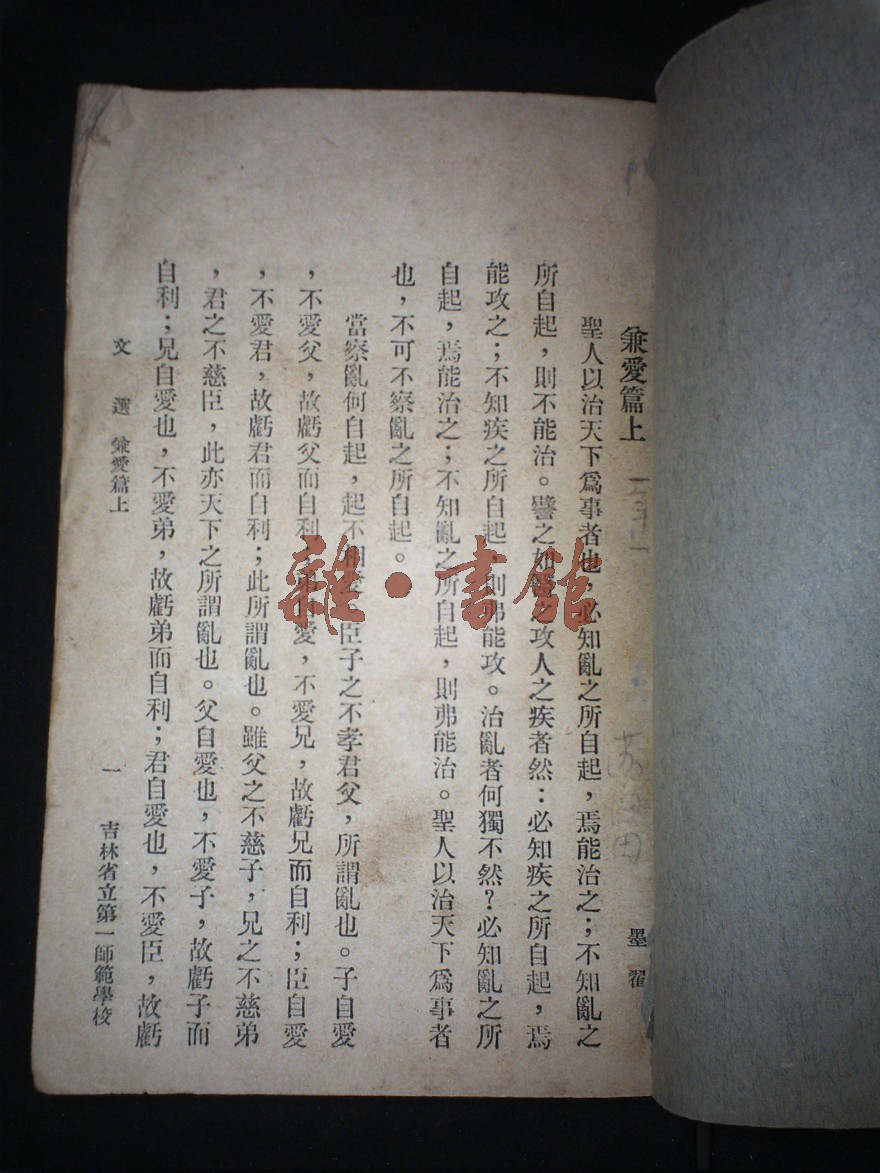 兼愛篇上
墨翟
聖人以治天下爲事者也，必知亂之所自起，焉能治之；不知亂之
所自起，則不能治。譬之如醫之攻人之疾者然：必知疾之所自起，焉
能攻之；不知疾之所自起，則弗能攻。治亂者何獨不然？必知亂之所
自起，焉能治之；不知亂之所自起，則弗能治。聖人以治天下爲事者
也，不可不察亂之所自起。
當察亂何自起，起不相愛。臣子之不孝君父，所謂亂也。子自愛
，不愛父，故虧父而自利；弟自愛，不愛兄，故虧兄而自利；臣自愛
，不愛君，故虧君而自利；此所謂亂也。雖父之不慈子，兄之不慈弟
，君之不慈臣，此亦天下之所謂亂也。父自愛也，不愛子，故虧子而
自利；兄自愛也，不愛弟，故虧弟而自利；君自愛也，不愛臣，故虧
文選 兼愛篇上
一
吉林省立第一師範學校
雜·書館